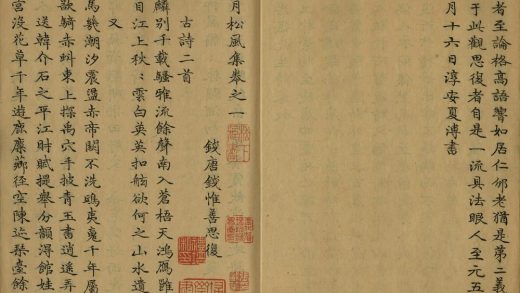 者至論格高語響如居仁邠老猶是第二義
于此觀思復者自是一流具法眼人至元五
月十六日淳安夏溥書
月松風集卷之一
錢唐錢惟善思復
古詩二首
麟別千載騷雅流餘聲南入蒼梧天鴻鴈
自江上秋雲白英英扣舷欲何之山水遺
又
馬幾潮汐震盪赤帝關不洗鴟夷魂千年屬
欲騎赤虯東上探禹穴手披青玉書逍遙弄
送韓介石之平江時賦提舉分韻得館娃
宮沒花草千年遊鹿麋鄉徑空陳迹琴臺餘